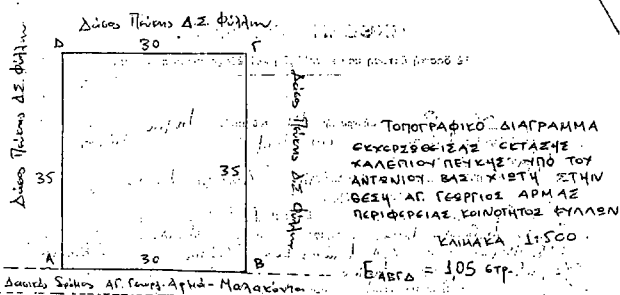 Δάσος Πεύκης Δ.Σ. Φύλλων
Δ 30 Γ
Δάσος Πεύκης Δ.Σ. Φύλλων
35
35
Δάσος Πεύκης Δ.Σ. Φύλλων
Α 30 Β
Δασικός Δρόμος Αγ. Γεωργ. Αρμά - Μαλακόντα
ΤΟΠΟΓΡΑΦΙΚΟ ΔΙΑΓΡΑΜΜΑ
ΕΚΧΕΡΣΩΘΕΙΣΑΣ ΕΚΤΑΣΗΣ
ΧΑΛΕΠΙΟΥ ΠΕΥΚΗΣ ΥΠΟ ΤΟΥ
ΑΝΤΩΝΙΟΥ ΒΑΣ. ΧΙΩΤΗ ΣΤΗΝ
ΘΕΣΗ ΑΓ. ΓΕΩΡΓΙΟΣ ΑΡΜΑΣ
ΠΕΡΙΦΕΡΕΙΑΣ ΚΟΙΝΟΤΗΤΟΣ ΦΥΛΛΩΝ
ΚΛΙΜΑΚΑ 1:500
Ε ΑΒΓΔ = 1,05 στρ.